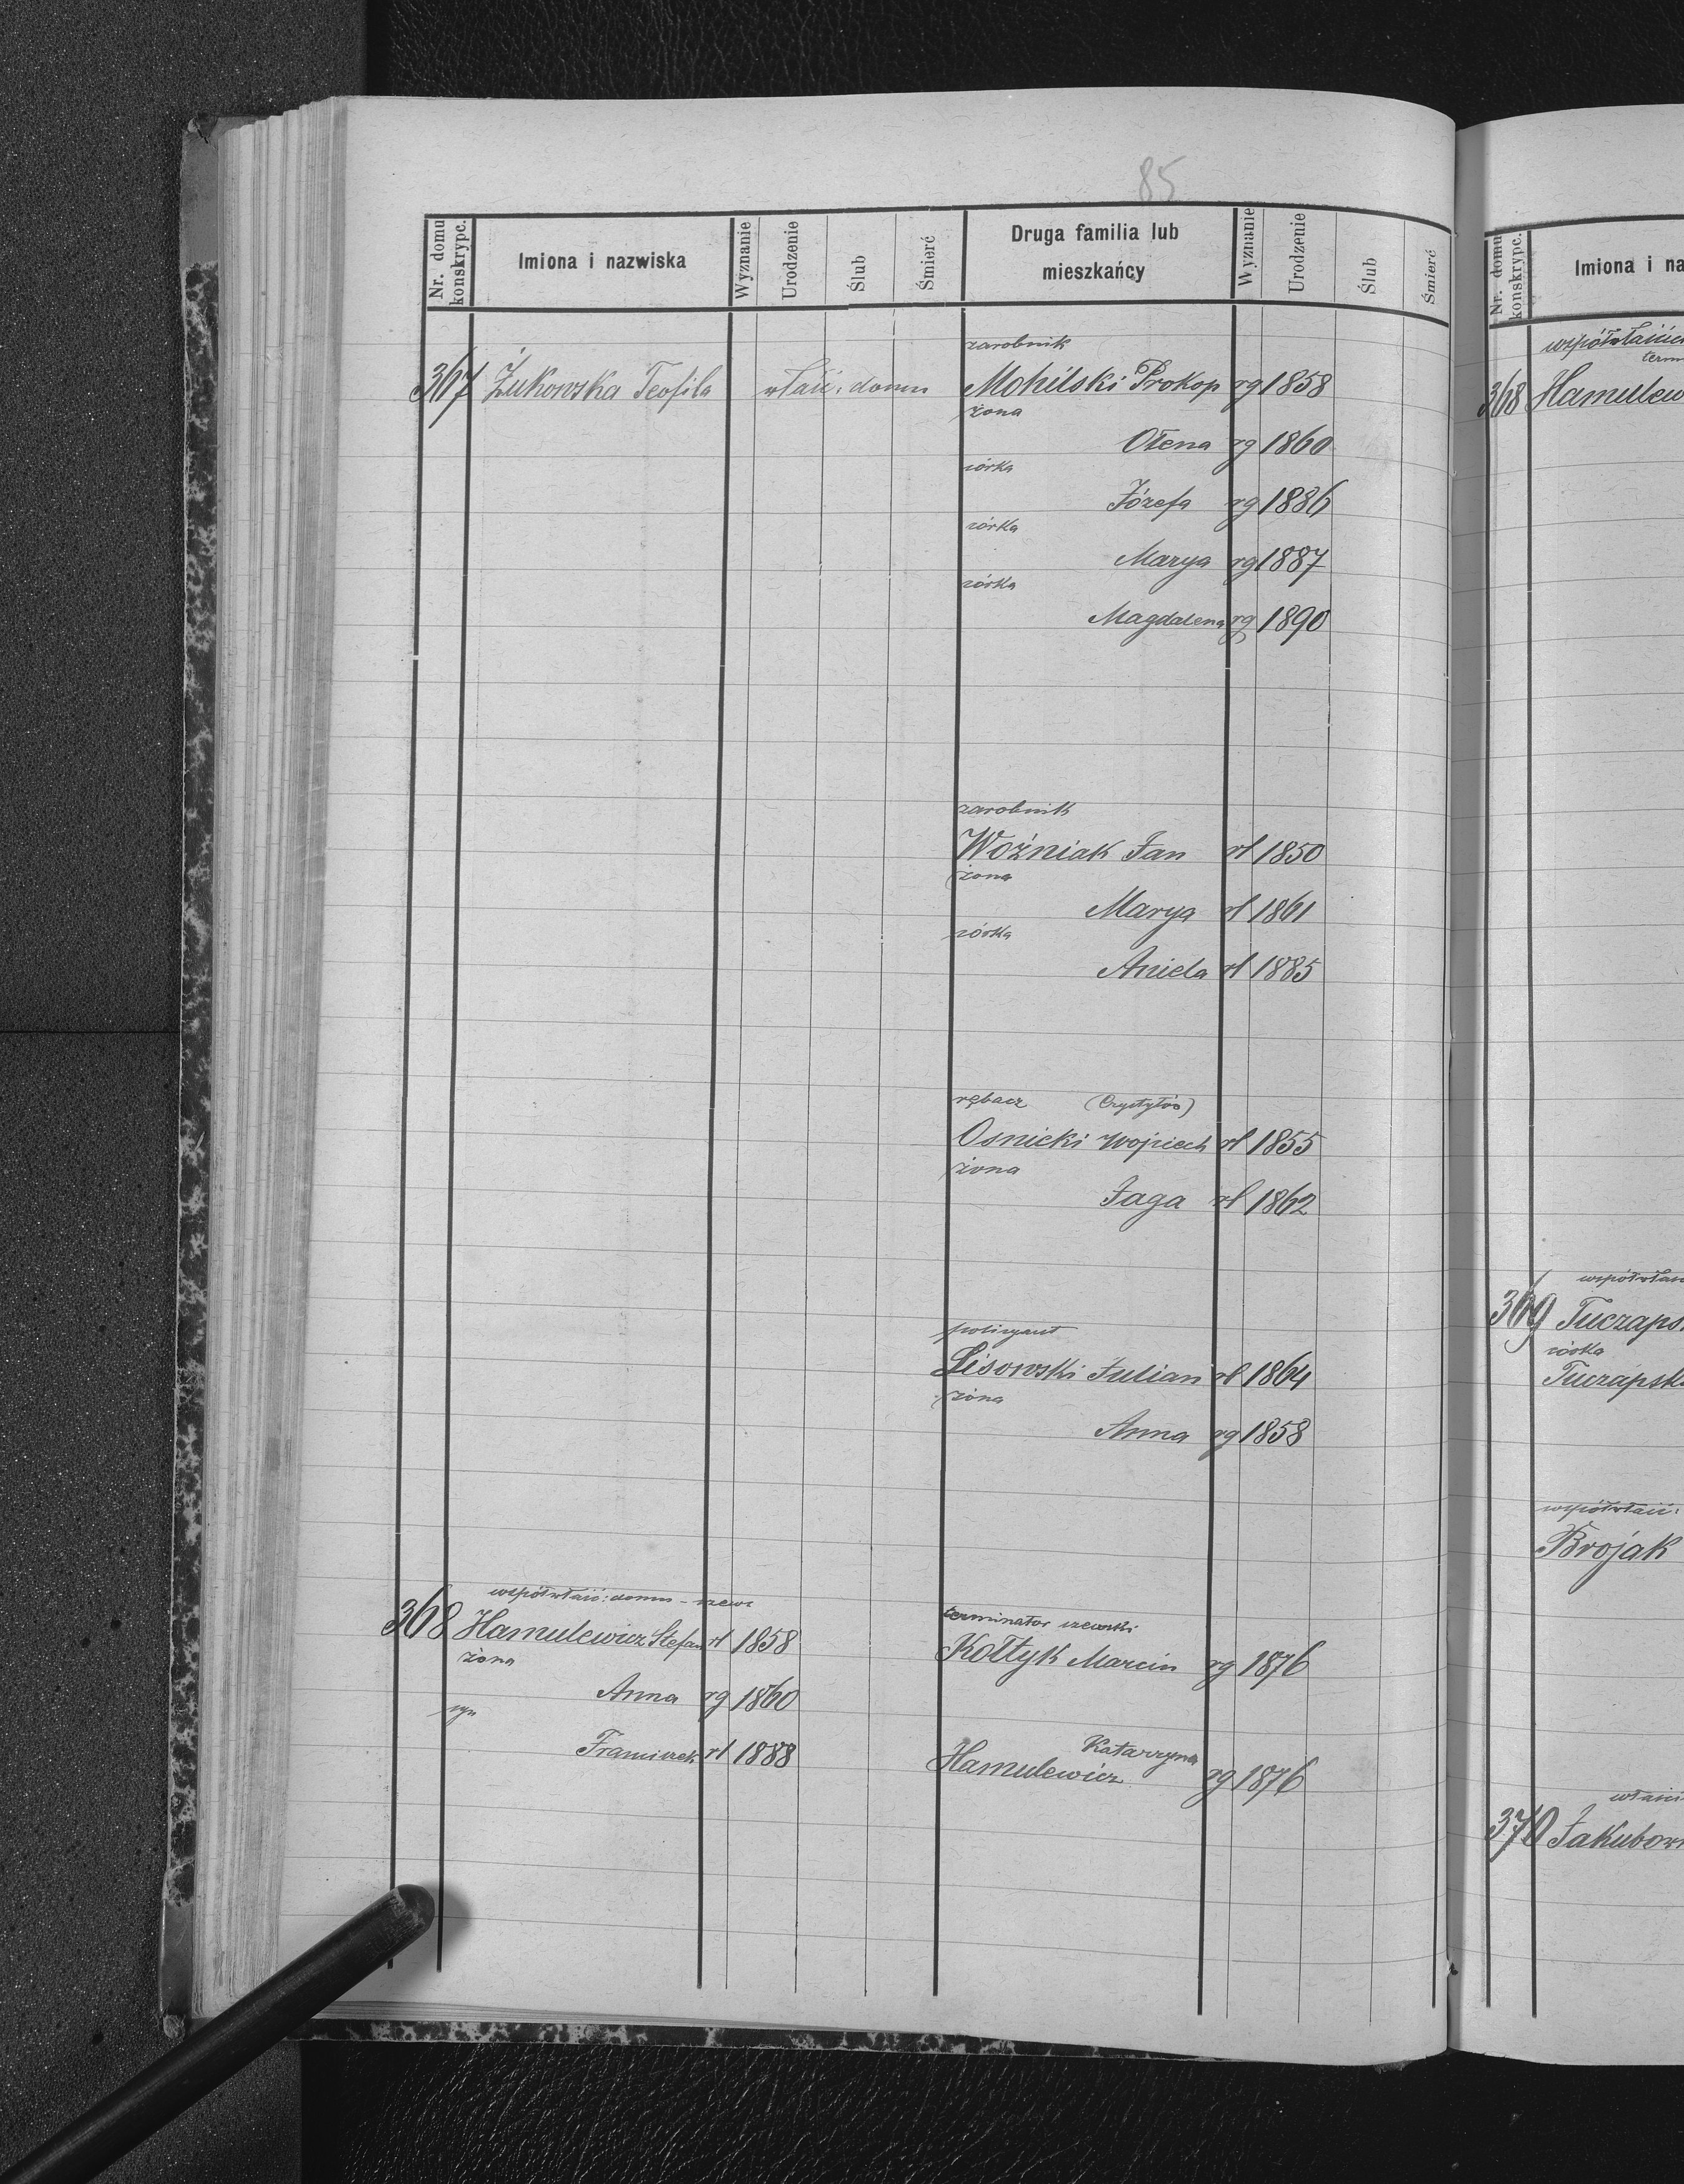 85
Nr. domu konskrypc.
Imiona i nazwiska
Wyznanie
Urodzenie
Ślub
Śmierć
Druga familia lub mieszkańcy
Wyznanie
Urodzenie
Ślub
Śmierć
zarobnik
367 Żukowska Teofila właśc: domu Mohilski Prokop rg 1858
żona
Ołena rg 1860
córka
Józefa rg 1886
córka
Marya rg 1887
córka
Magdalena rg 1890
zarobnik
Woźniak Jan rł 1850
żona
Marya rł 1861
córka
Aniela rł 1885
rębacz
Osnicki Wojciech rł 1855
żona
Jaga rł 1862
policyant
Lisowski Julian rł 1864
żona
Anna rg 1858
współwłaśc: domu - szewc
368 Hamulewicz Stefan rł 1858
żona
Anna rg 1860
syn
Franciszek rł 1888
terminator szewski
Kołtyk Marcin rg 1876
Katarzyna
Hamulewicz rg 1876
Nr. domu konskrypc.
Imiona i na
współwłaścic
term
368 Hamulew
współwłaś
369 Tuczaps
córka
Tuczapsk
współwłaśc:
Brojak
właści
370 Jakubow